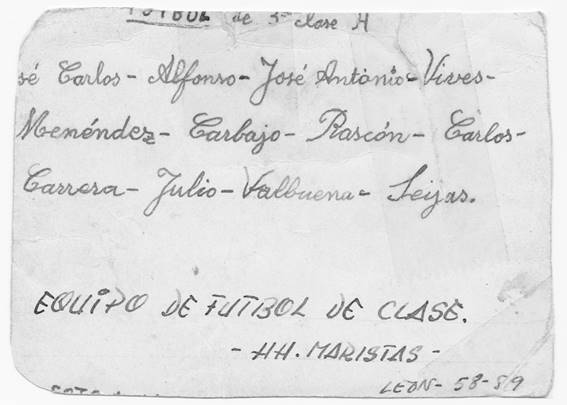 FUTBOL de 3ª clase A
sé Carlos - Alfonso - José Antonio - Vives -
Menéndez - Carbajo - Rascón - Carlos -
Carrera - Julio - Valbuena - Seijas.
EQUIPO DE FUTBOL DE CLASE.
- HH. MARISTAS -
LEON - 58-59